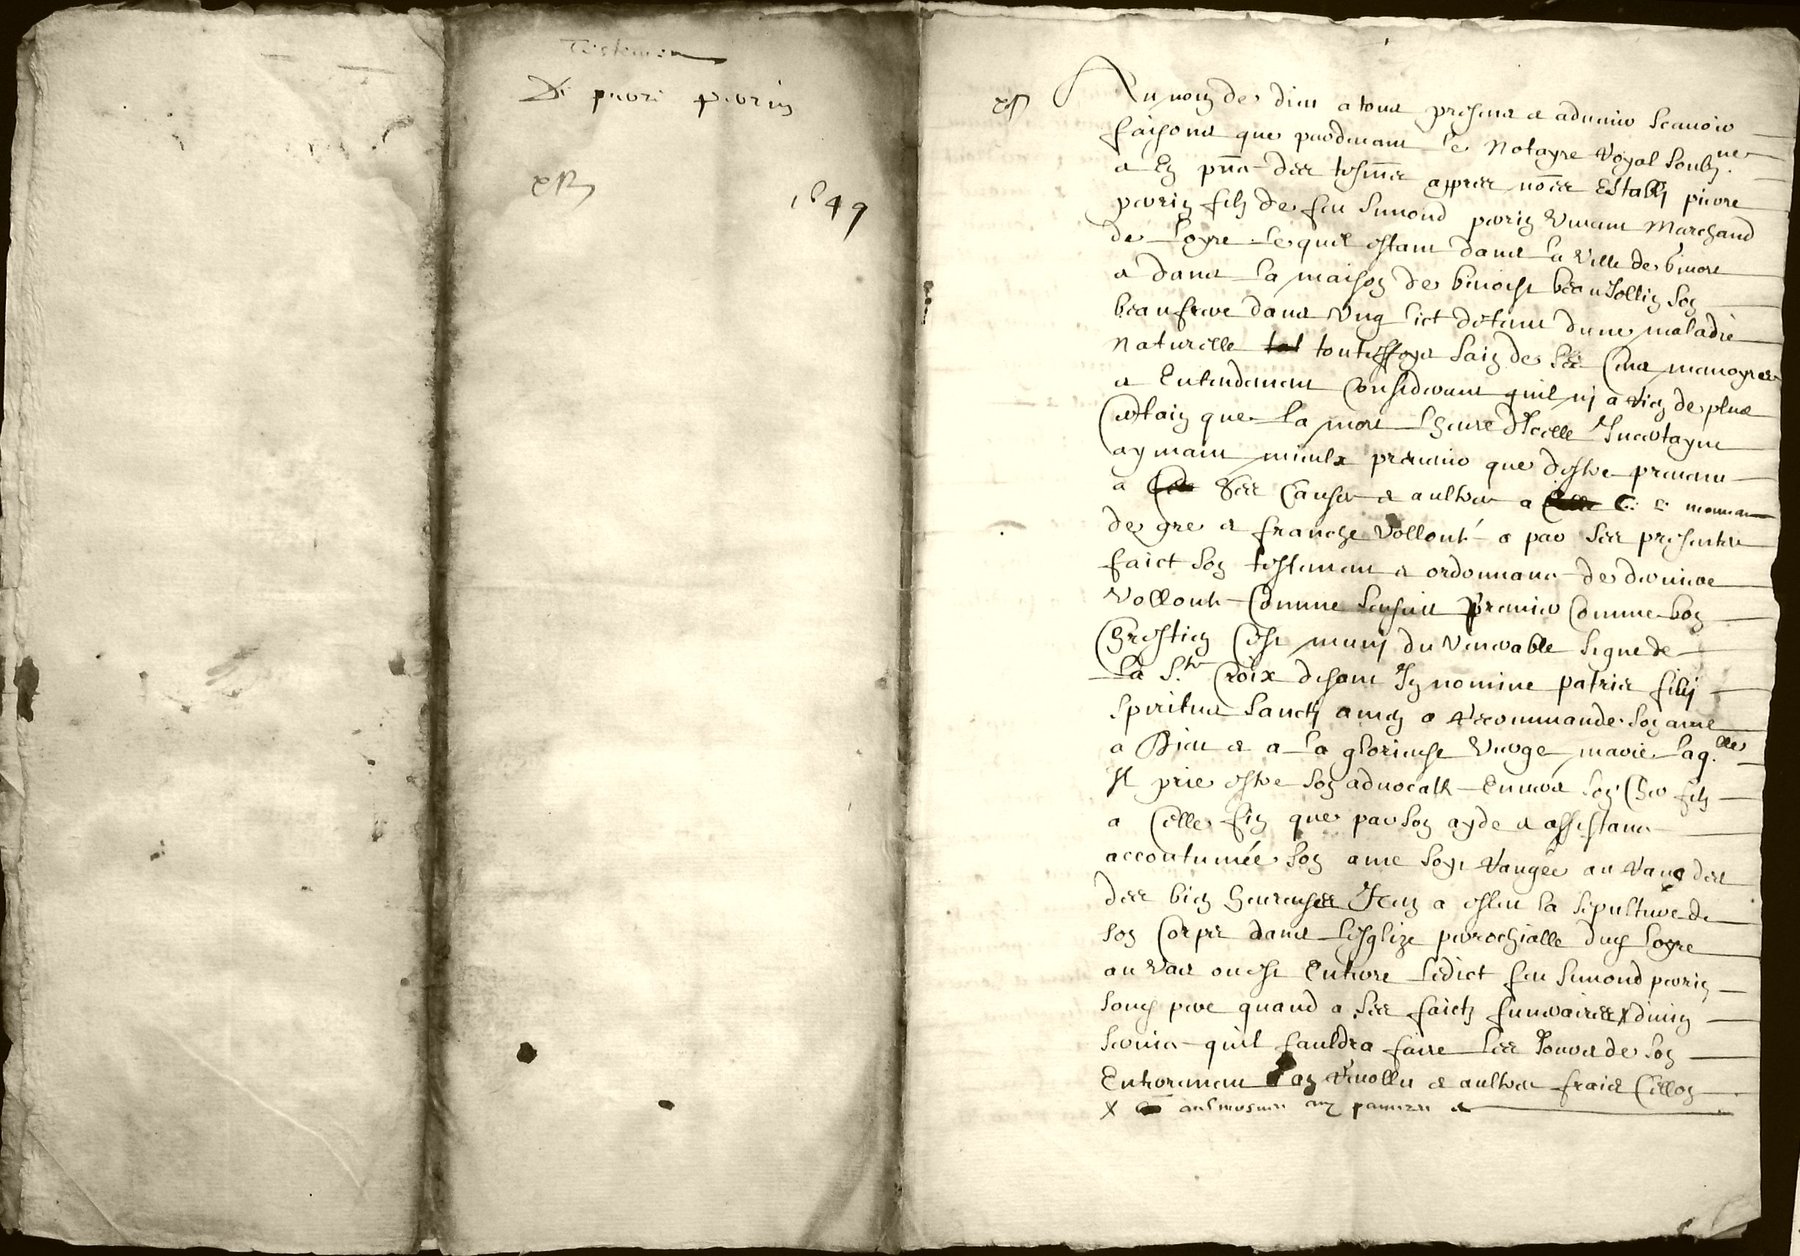 Testemen
De pierre perrin
1649
Au nom de dieu a tous presens et advenir scavoir
faisons que pardevant le Notayre Royal soubzne
a En pnce des tesmes appres nomes Estably pierre
perrin filz de feu Simond perrin vivant Marchand
de Loyre Lequel estant dans la ville de
et dans la maison de benoist beaujollin son
beaufrere dans ung lict detenu dune maladie
naturelle toutesfoys sain de ses Cens memoyres
et Entendement Considerant quil nj a rien de plus
Certain que la mort Lheure dIcelle Incertayne
aymant mieulx prevenir que destre prevenu
a Ses Causes et aultres a Ce le mouvant
de gre et franche vollonté a par Ses presentes
faict son testement et ordonnance de derniere
vollonte Comme sensuit premier Comme bon
Chrestien Cest munj du venerable signe de
La Ste Croix disant In nomine patris filij
spiritus sancti amen a Recommande son ame
a Dieu et a La glorieuse vierge marie Laqlle
Il prie estre son advocatte Envers son Cher filz
a Celle fin que par son ayde et assistance
accoutumée son ame soyt Rangée au Rang des
des bien heureuses Item a esleu la sepulture de
son Corps dans Lesglize parochialle dud Loyre
au vas ou est Enterre Ledict feu Simond perrin
son pere quand a ses faictz funeraires X divin
service quil fauldra faire Les Jours de son
Enterement an Revollu et aultres frais Cellon
X aulmosnes aux pauvres et